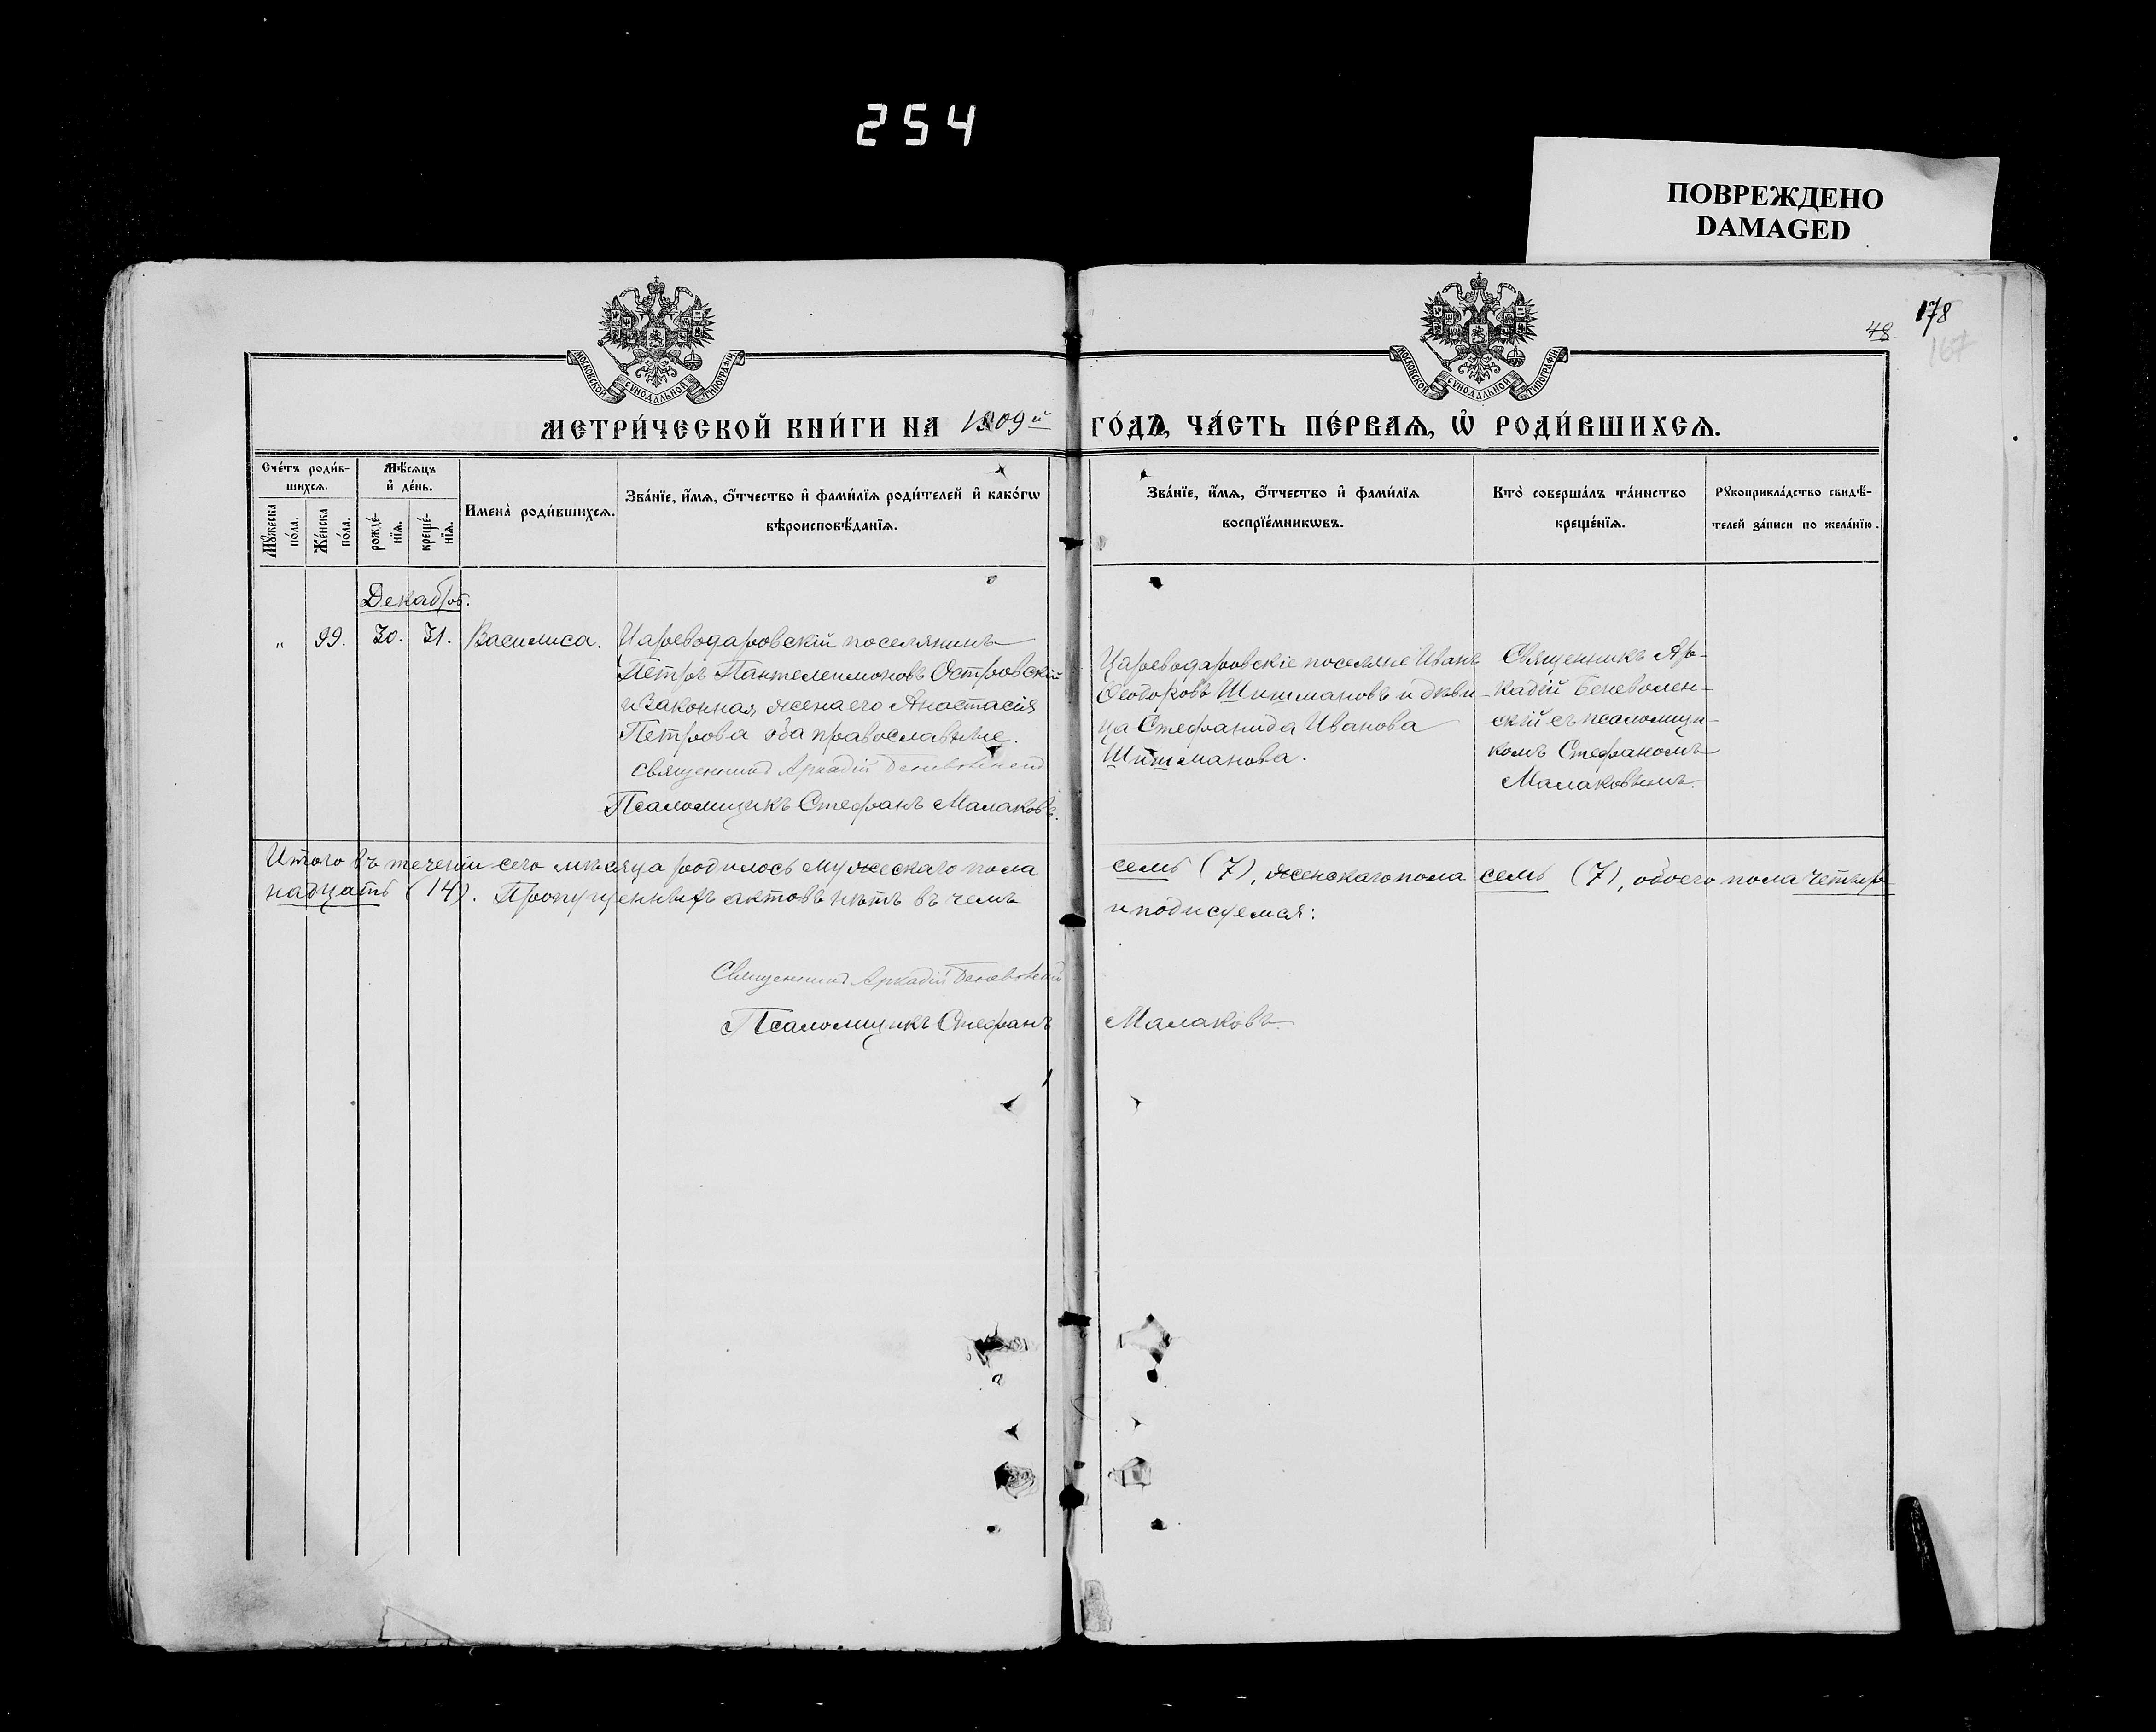 254
ПОВРЕЖДЕНО
DAMAGED
178
48
167
МОСКОВСКОЙ СѴНОДАЛЬНОЙ ТИПОГРАФІИ
МОСКОВСКОЙ СѴНОДАЛЬНОЙ ТИПОГРАФІИ
МЕТРИ́ЧЕСКОЙ КНИ́ГИ НА 1909й ГО́ДЪ, ЧА́СТЬ ПЕ́РВАѦ, Ѡ҆ РОДИ́ВШИХСѦ.
Сче́тъ роди́в-
шихсѧ.
Мꙋ́жеска
по́ла.
Же́нска
по́ла.
Мѣ́сѧцъ
и҆ де́нь.
рожде́-
нїѧ.
креще́-
нїѧ.
Имена̀ роди́вшихсѧ.
Зва́нїе, и҆́мѧ, ѻ҆́тчество и҆ фами́лїѧ роди́телей и҆ како́гѡ
вѣроисповѣ́данїѧ.
Зва́нїе, и҆́мѧ, ѻ҆́тчество и҆ фами́лїѧ
воспрїе́мникѡвъ.
Кто̀ соверша́лъ та́инство
креще́нїѧ.
Рꙋкоприкла́дство свидѣ́-
телей за́писи по жела́нїю.
Декабрь.
„ 99. 30. 31. Василиса.
Цареводаровскій поселянинъ
Петръ Пантелеимоновъ Островскій
и законная жена его Анастасія
Петрова оба православные.
Священникъ Аркадій Беневоленскій
Псаломщикъ Стефанъ Малаковъ.
Цареводаровскіе поселяне Иванъ
Ѳеодоровъ Шишмановъ и дѣви-
ца Стефанида Иванова
Шишманова.
Священникъ Ар-
кадій Беневолен-
скій съ псаломщи-
комъ Стефаномъ
Малаковымъ.
Итого въ теченіи сего мѣсяца родилось мужескаго пола семь (7), женскаго пола семь (7), обоего пола четыр-
надцать (14). Пропущенныхъ актовъ нѣтъ въ чемъ и подписуемся:
Священникъ Аркадій Беневоленскій
Псаломщикъ Стефанъ Малаковъ.